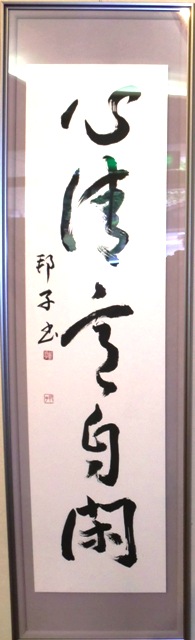 心清意自閑
邦子书